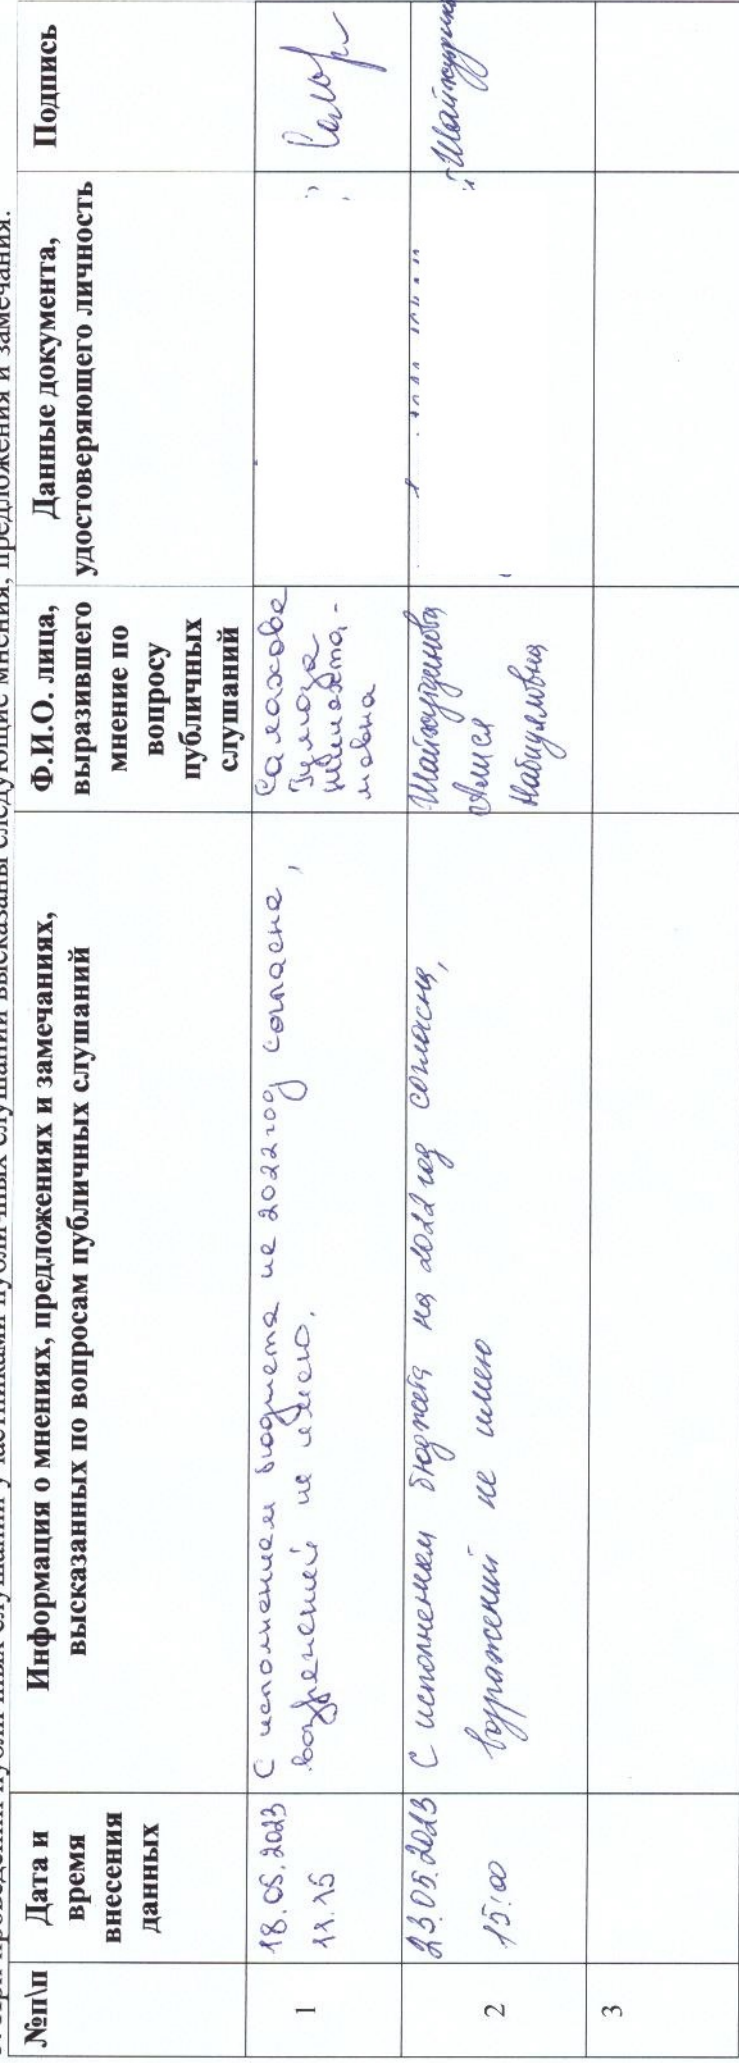 При проведении публичных слушаний участниками публичных слушаний высказаны следующие мнения, предложения и замечания.
№п\п
Дата и
время
внесения
данных
Информация о мнениях, предложениях и замечаниях,
высказанных по вопросам публичных слушаний
Ф.И.О. лица,
выразившего
мнение по
вопросу
публичных
слушаний
Данные документа,
удостоверяющего личность
Подпись
1
18.05.2023
11.15
С исполнением бюджета на 2022 год согласна,
возражений не имею.
Салахова
Гульназ
мовна
2
23.05.2023
15:00
С исполнением бюджета на 2022 год согласна,
возражений не имею
Шайхутдинова
Алися
Набиулловна
3